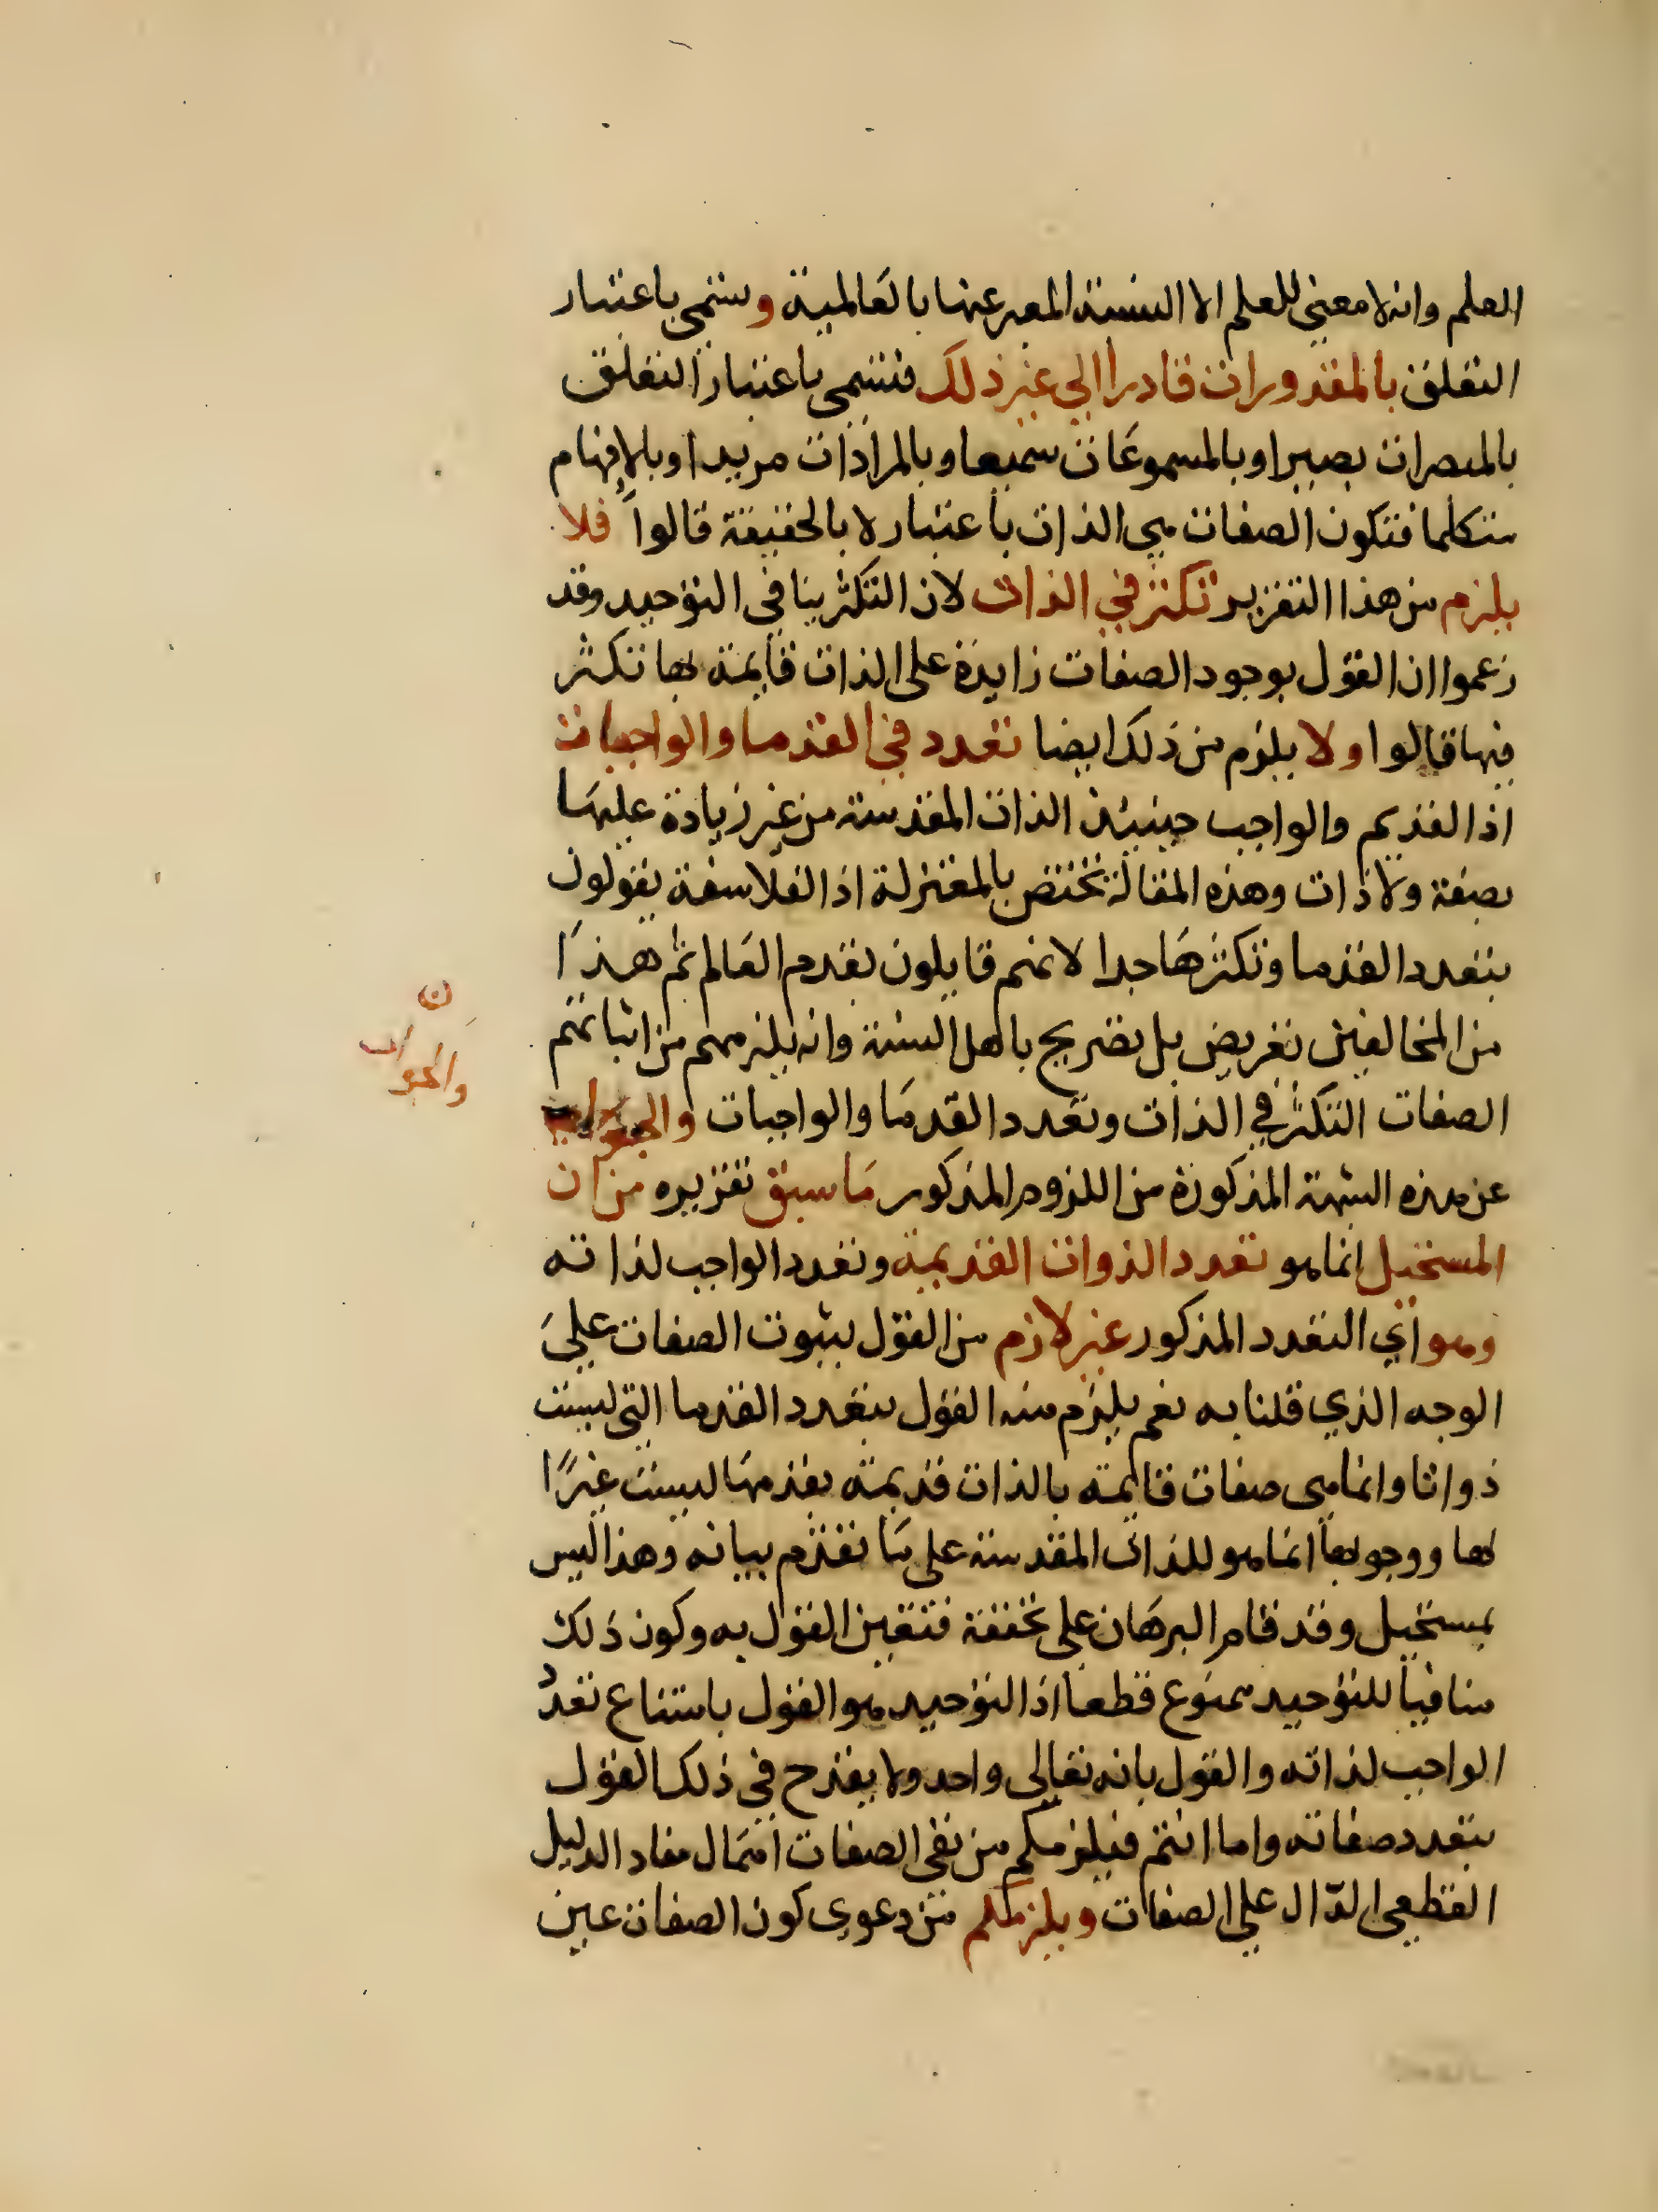 العلم وانه لا معنى للعلم الا النسبة المعبر عنها بالعالمية وتسمى باعتبار
التعلق بالمقدورات قادرا الى غير ذلك فتسمى باعتبار التعلق
بالمبصرات بصيرا وبالمسموعات سميعا وبالمرادات مريدا وبالافهام
متكلما فتكون الصفات هي الذات باعتبار لا بالحقيقة قالوا فلا
يلزم من هذا التقرير تكثر في الذات لان التكثر ينافى التوحيد وقد
زعموا ان القول بوجود الصفات زايدة على الذات قايمة بها تكثر
فيها قالوا ولا يلزم من ذلك ايضا تعدد في القدما والواجبات
اذ القديم والواجب حينيئذ الذات المقدسة من غير زيادة عليها
بصفة ولا ذات وهذه المقالة تختص بالمعتزلة اذ الفلاسفة يقولون
بتعدد القدما وتكثرها جدا لانهم قايلون بقدم العالم ثم هذا
من المخالفين تعريض بل تصريح باهل السنة وانه يلزمهم من اثباتهم
الصفات التكثر في الذات وتعدد القدما والواجبات والجواب
ن
والجواب
عن هذه الشبهة المذكورة من اللزوم المذكور ما سبق تقريره من ان
المستحيل انما هو تعدد الذوات القديمة وتعدد الواجب لذاته
وهو اي التعدد المذكور غير لازم من القول بثبوت الصفات على
الوجه الذي قلنا به نعم يلزم منه القول بتعدد القدما التي ليست
ذواتا وانما هي صفات قايمة بالذات قديمة بقدمها ليست غيرًا
لها ووجوبها انما هو للذات المقدسة على ما تقدم بيانه وهذا ليس
بمستحيل وقد قام البرهان على تحققه فتعين القول به وكون ذلك
منافيا للتوحيد ممنوع قطعا اذ التوحيد هو القول بامتناع تعدد
الواجب لذاته والقول بانه تعالى واحد ولا يقدح في ذلك القول
بتعدد صفاته واما انتم فيلزمكم من نفى الصفات اهمال مفاد الدليل
القطعي الدّال على الصفات ويلزمكم من دعوى كون الصفات عين